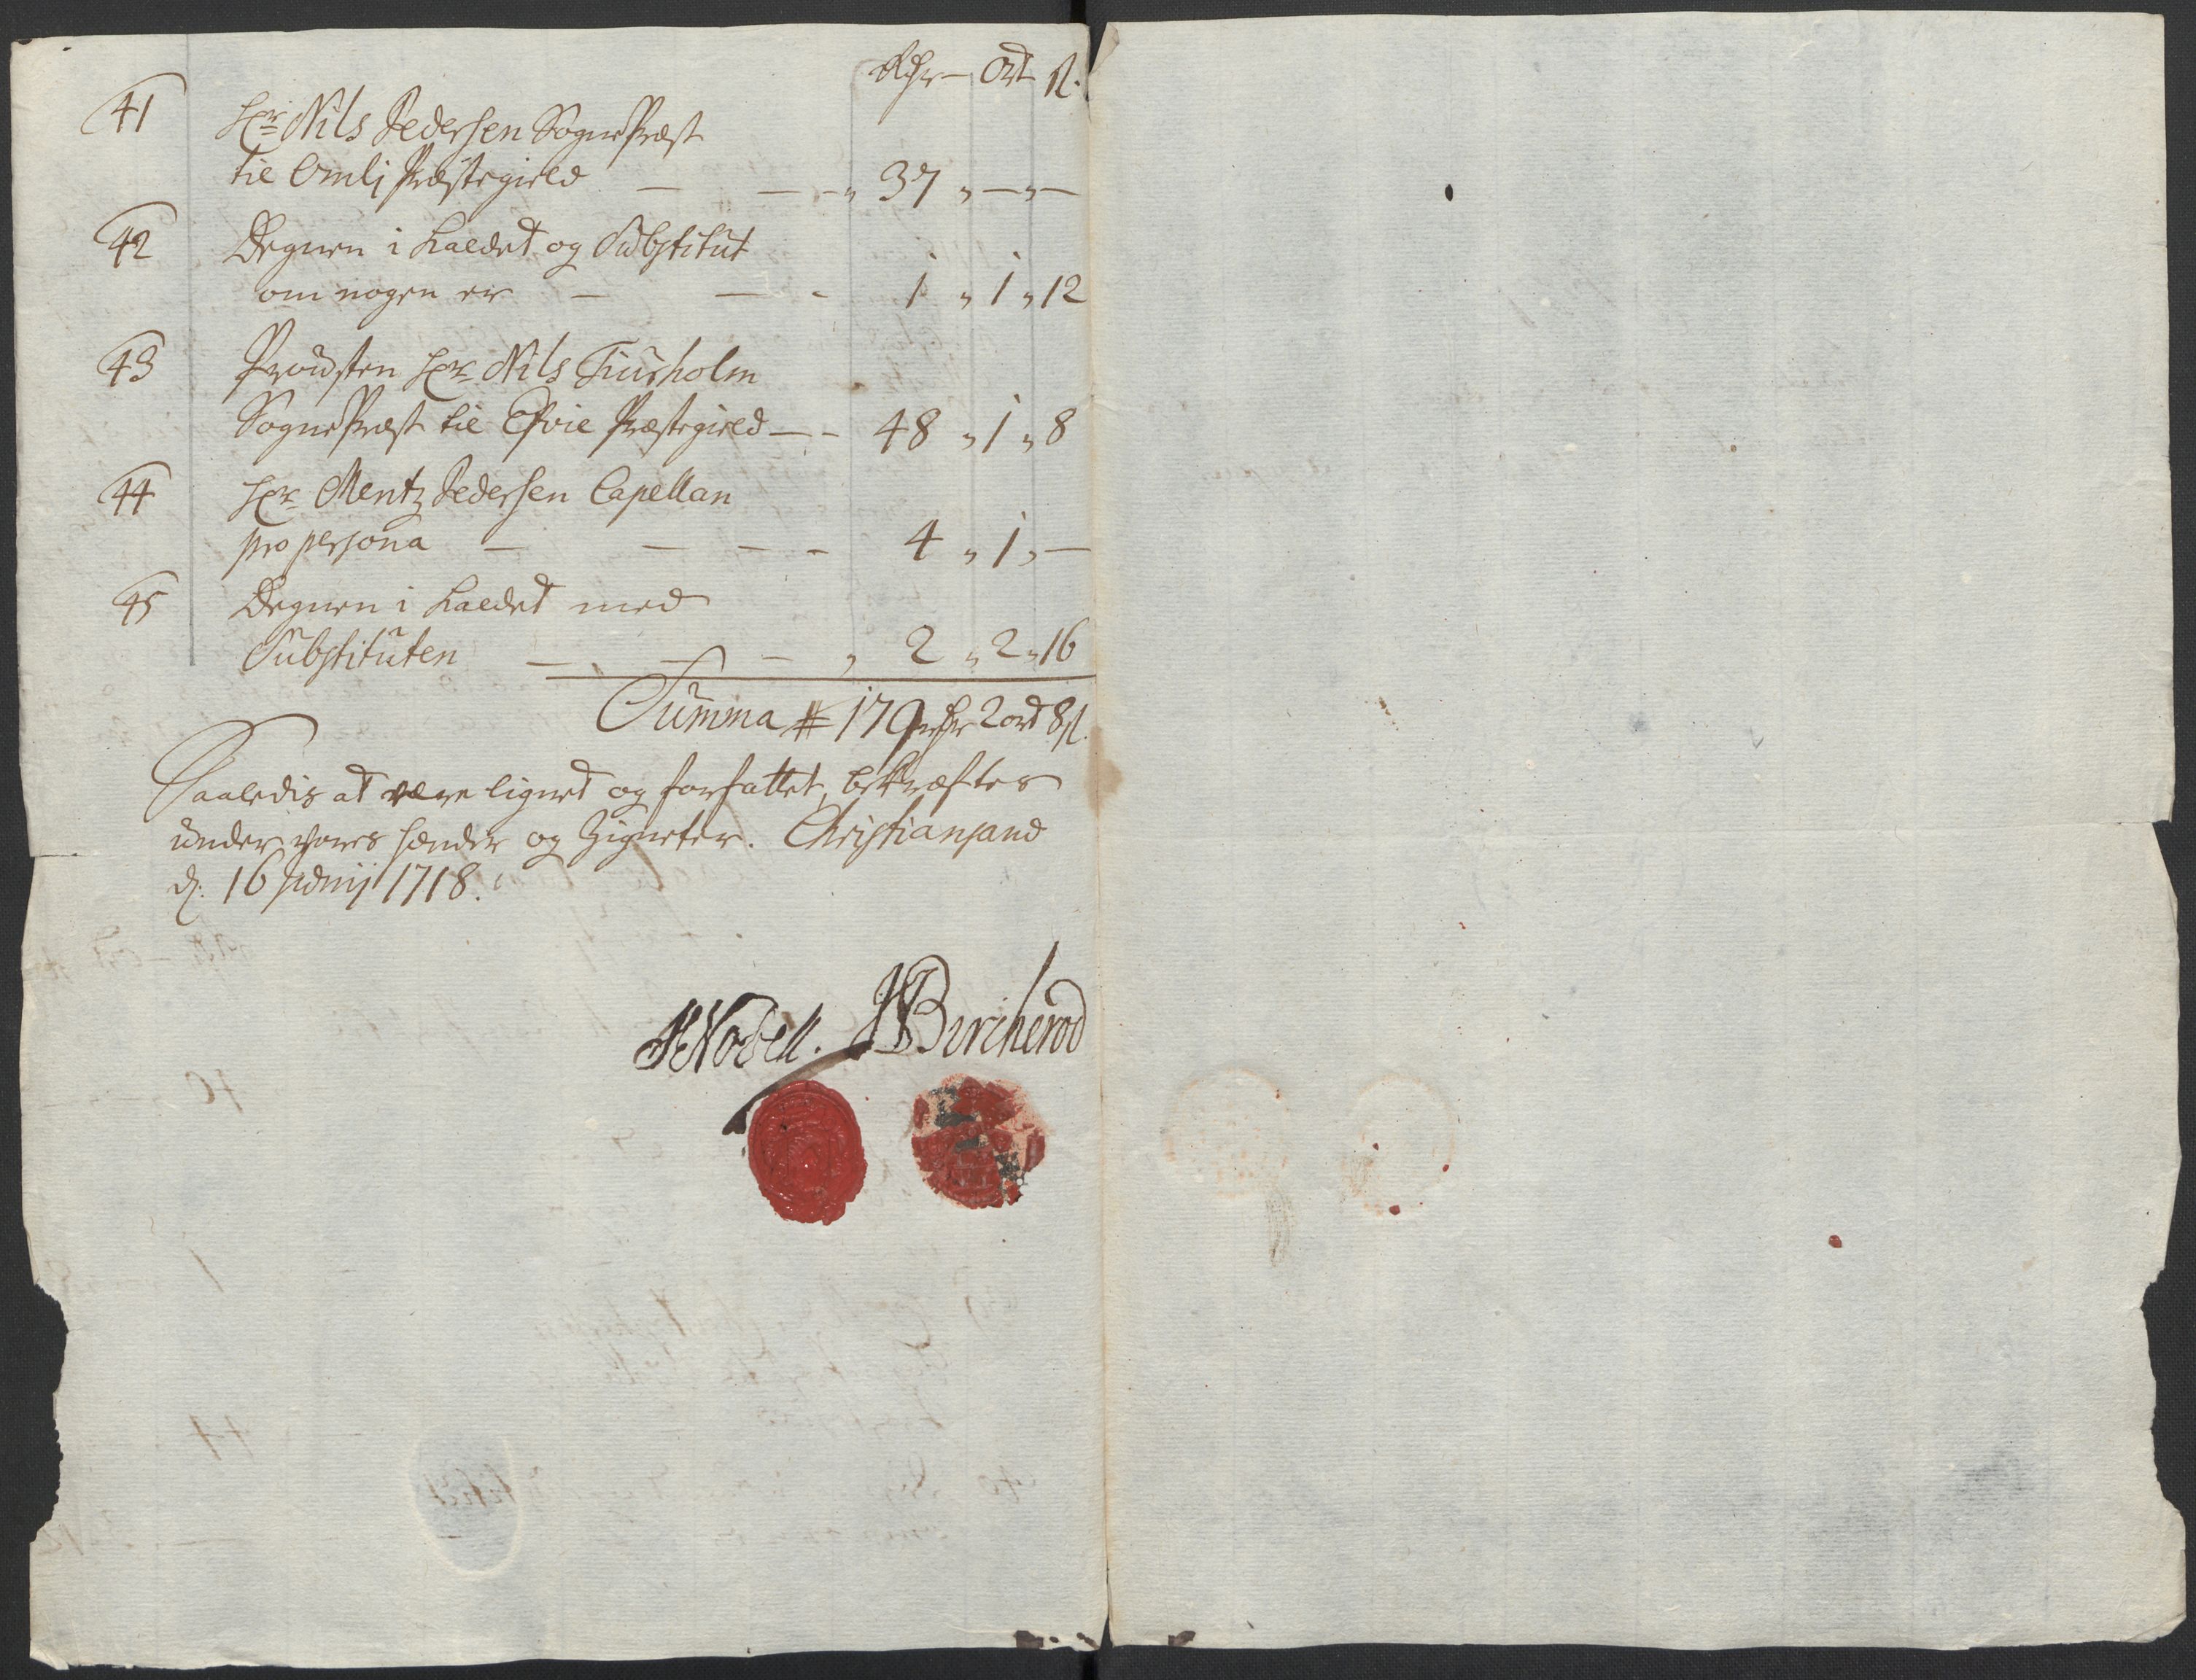 Rdr – Ort ß.
41 Hr. Nils Pedersen SognePræst
til Omli Præstegield — — – „ 37 „ — „ —
42 Degnen i Kaldet og Substitut
om nogen er — — - 1 „ 1 „ 12
43 Proudsten Hr. Nils Tiurholm
SognePræst til Efvie Præstegield — - 48 „ 1 „ 8
44 Hr. Mentz Pedersen Capellan
pro persona — — — - 4 „ 1 „ —
45 Degnen i Kaldet med
Substituten — — — „ 2 „ 2 „ 16
Summa # 179 rdr 2 ort 8 ß.
Saaledis at være lignet og forfattet, bekræftes
under vores hænder og Zigneter. Christiansand
d. 16 Junij 1718.
HNobell. JBircherod